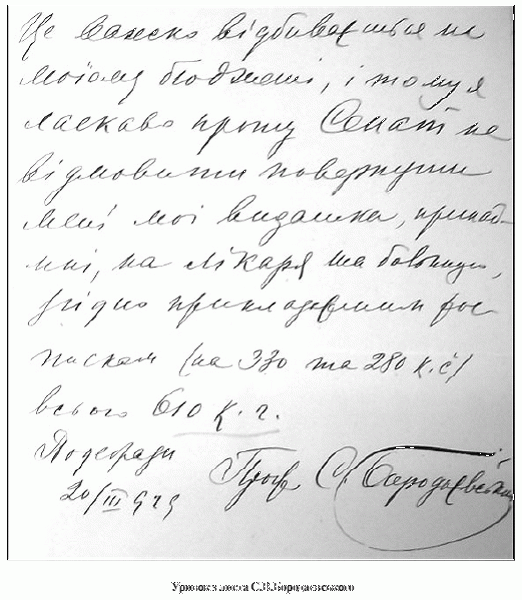 Це важко відбивається на
моїому бюджеті, і тому я
ласкаво прошу Сенат не
відмовити повернути
мені мої видатки, принай-
мні, на лікаря та больницю,
згідно прикладеним рос-
пискам (на 330 та 280 к.č)
всього 610 к. ч.
Подєбради
20/III 929
Проф. С. Бородаєвський
Уривок з листа С.В.Бородаєвського